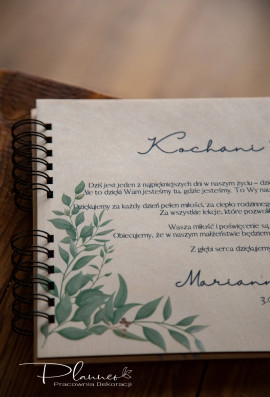 Kochani
Dziś jest jeden z najpiękniejszych dni w naszym życiu – dzie
ale to dzięki Wam jesteśmy tu, gdzie jesteśmy. To Wy nau
Dziękujemy za każdy dzień pełen miłości, za ciepło rodzinnego
Za wszystkie lekcje, które pozwol
Wasza miłość i poświęcenie są
Obiecujemy, że w naszym małżeństwie będziem
Z głębi serca dziękujemy
Mariann
3.0
Planner
Pracownia Dekoracji